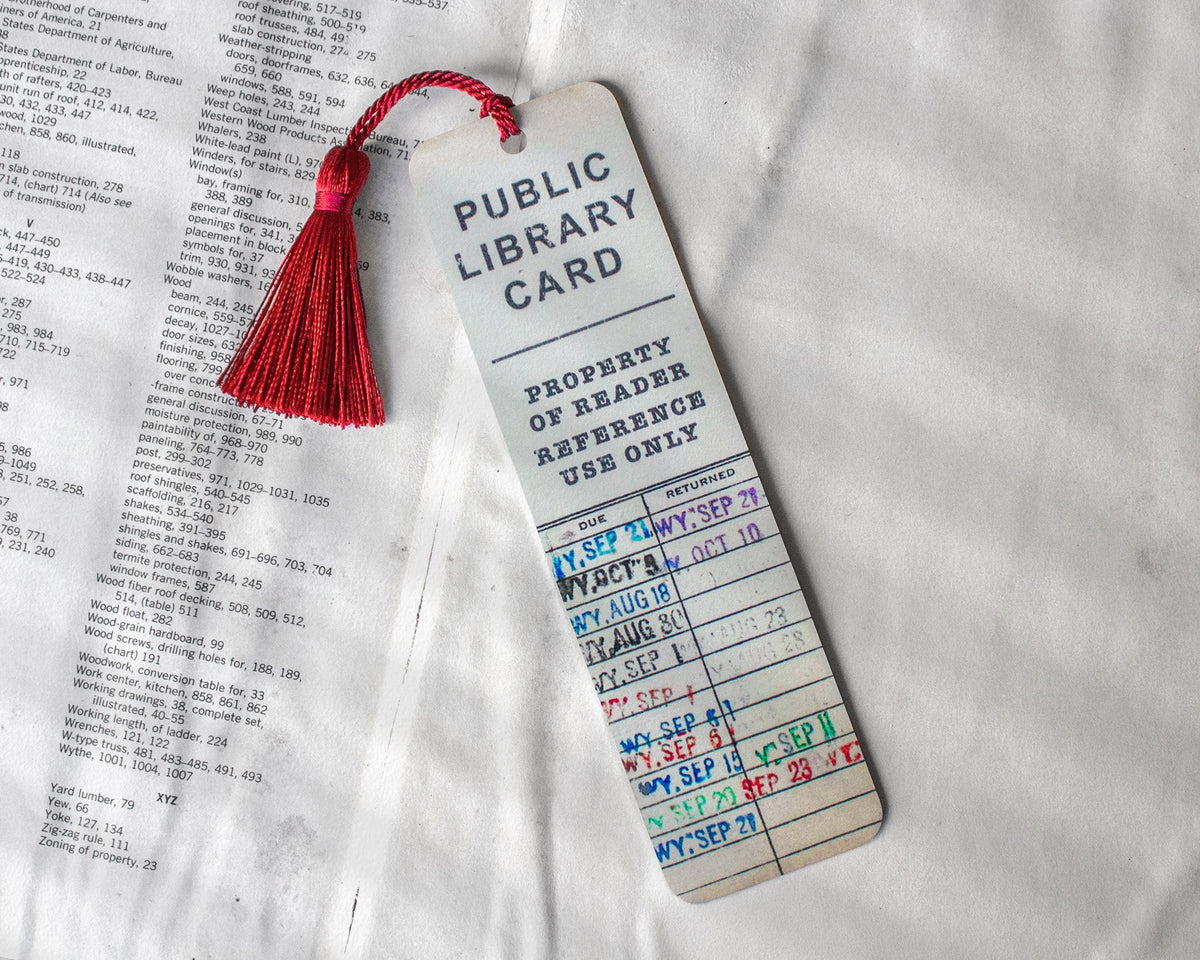 Brotherhood of Carpenters and
iners of America, 21
States Department of Agriculture,
88
States Department of Labor, Bureau
pprenticeship, 22
th of rafters, 420–423
unit run of roof, 412, 414, 422,
30, 432, 433, 447
wood, 1029
chen, 858, 860, illustrated,
118
n slab construction, 278
714, (chart) 714 (Also see
of transmission)
V
ck, 447–450
, 447–449
–419, 430–433, 438–447
522–524
r, 287
275
, 983, 984
710, 715–719
722
r, 971
98
5, 986
9–1049
3, 251, 252, 258,
57
38
769, 771
9, 231, 240
covering, 517–519
roof sheathing, 500–519
roof trusses, 484, 49
slab construction, 274, 275
Weather-stripping
doors, doorframes, 632, 636, 64
659, 660
windows, 588, 591, 594
Weep holes, 243, 244
West Coast Lumber Inspecti Bureau, 7
Western Wood Products As iation, 71
Whalers, 238
White-lead paint (L), 97
Winders, for stairs, 829
Window(s)
bay, framing for, 310, 4, 383,
388, 389
general discussion, 5
openings for, 341, 3
placement in block
symbols for, 37
trim, 930, 931, 93 59
Wobble washers, 16
Wood
beam, 244, 245,
cornice, 559–57
decay, 1027–10
door sizes, 63
finishing, 958
flooring, 799
over conc
-frame construct
general discussion, 67–71
moisture protection, 989, 990
paintability of, 968–970
paneling, 764–773, 778
post, 299–302
preservatives, 971, 1029–1031, 1035
roof shingles, 540–545
scaffolding, 216, 217
shakes, 534–540
sheathing, 391–395
shingles and shakes, 691–696, 703, 704
siding, 662–683
termite protection, 244, 245
window frames, 587
Wood fiber roof decking, 508, 509, 512,
514, (table) 511
Wood float, 282
Wood-grain hardboard, 99
Wood screws, drilling holes for, 188, 189,
(chart) 191
Woodwork, conversion table for, 33
Work center, kitchen, 858, 861, 862
Working drawings, 38, complete set,
illustrated, 40–55
Working length, of ladder, 224
Wrenches, 121, 122
W-type truss, 481, 483–485, 491, 493
Wythe, 1001, 1004, 1007
XYZ
Yard lumber, 79
Yew, 66
Yoke, 127, 134
Zig-zag rule, 111
Zoning of property, 23
PUBLIC
LIBRARY
CARD
PROPERTY
OF READER
REFERENCE
USE ONLY
DUE RETURNED
WY. SEP 21 WY. SEP 21
WY. OCT 9 OCT 10
WY. AUG 18
WY. AUG 30 WY. AUG 23
WY. SEP 1 WY. AUG 28
WY. SEP 1
WY. SEP 6
WY. SEP 6 SEP 11
WY. SEP 15 SEP 23
SEP 20
WY. SEP 21